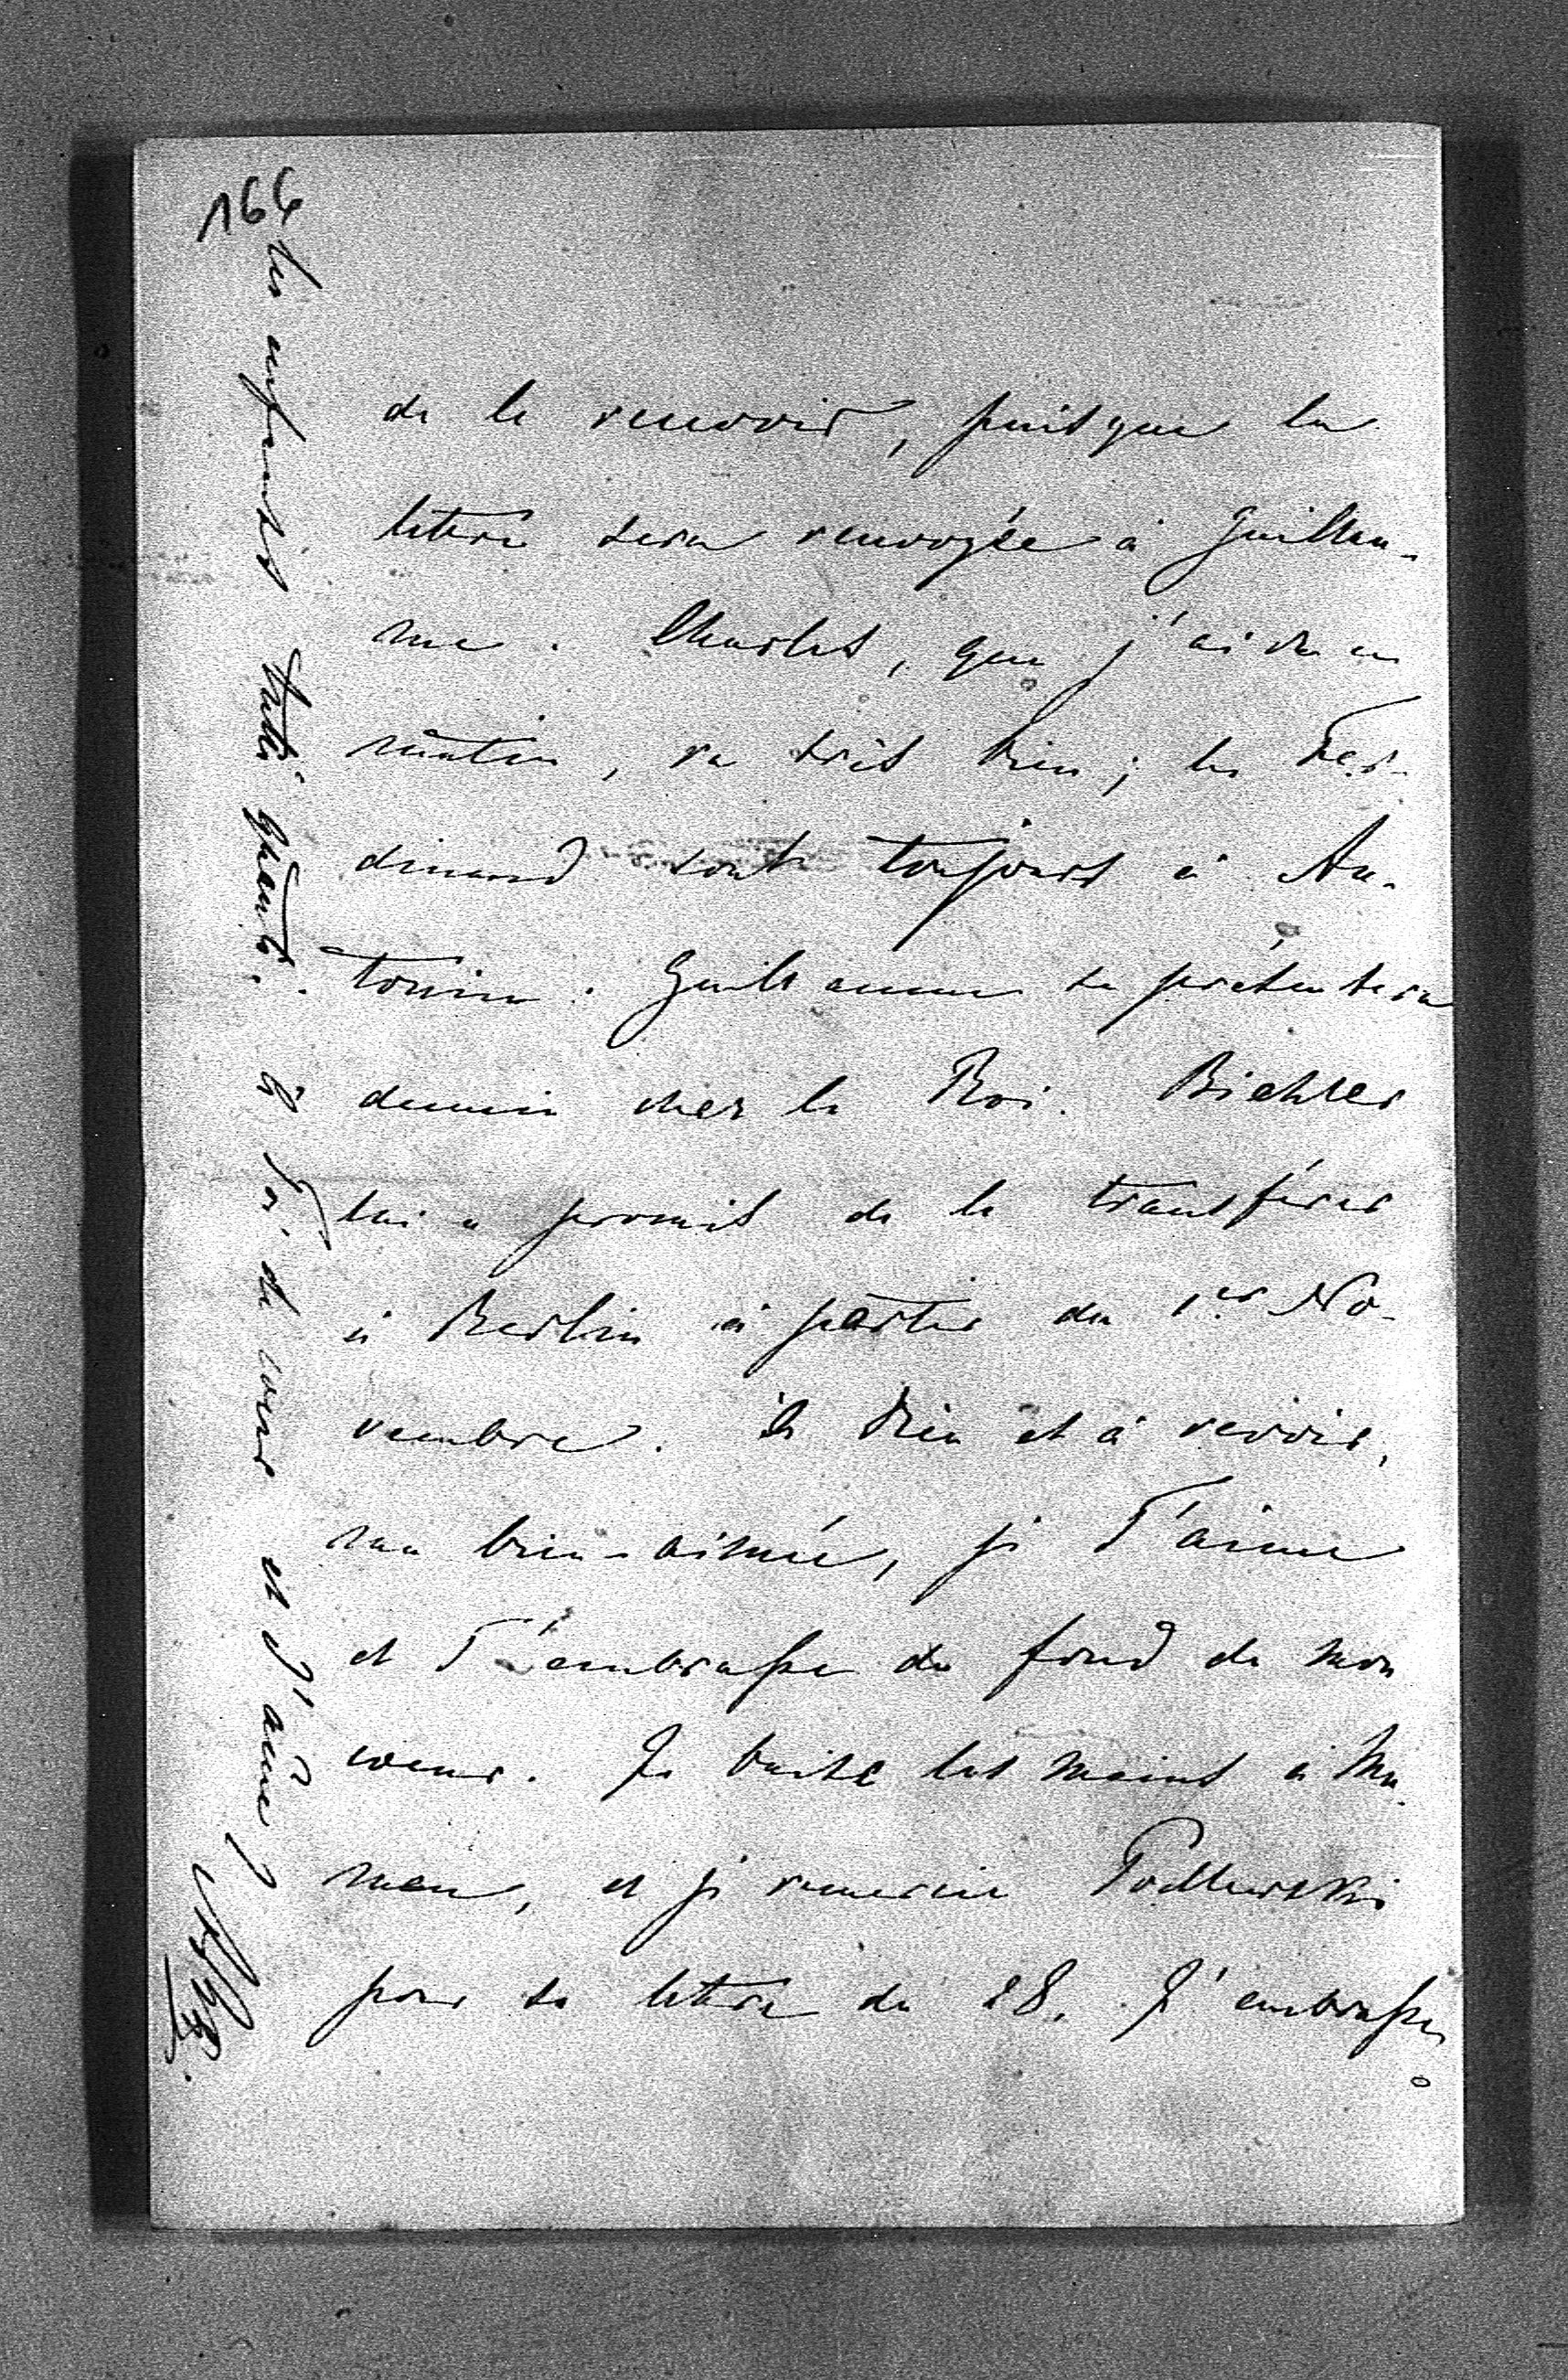 166
de le recevoir, puisque la
lettre sera renvoyée à Guillau-
me. Charles, que j'ai vu ce
matin, va très bien; les Fer-
dinand sont toujours à An-
tonin. Guillaume se présentera
demain chez le Roi. Biehler
lui a promis de le transférer
à Berlin à partir du 1er No-
vembre. à Dieu et à revoir,
ma bien-aimée, je T'aime
et T'embrasse du fond de mon
coeur. Je baise les mains à Ma-
man, et je remercie Podlewski
pour sa lettre du 28. J'embrasse
les enfants tutti quanti. à Toi de coeur et d'âme!